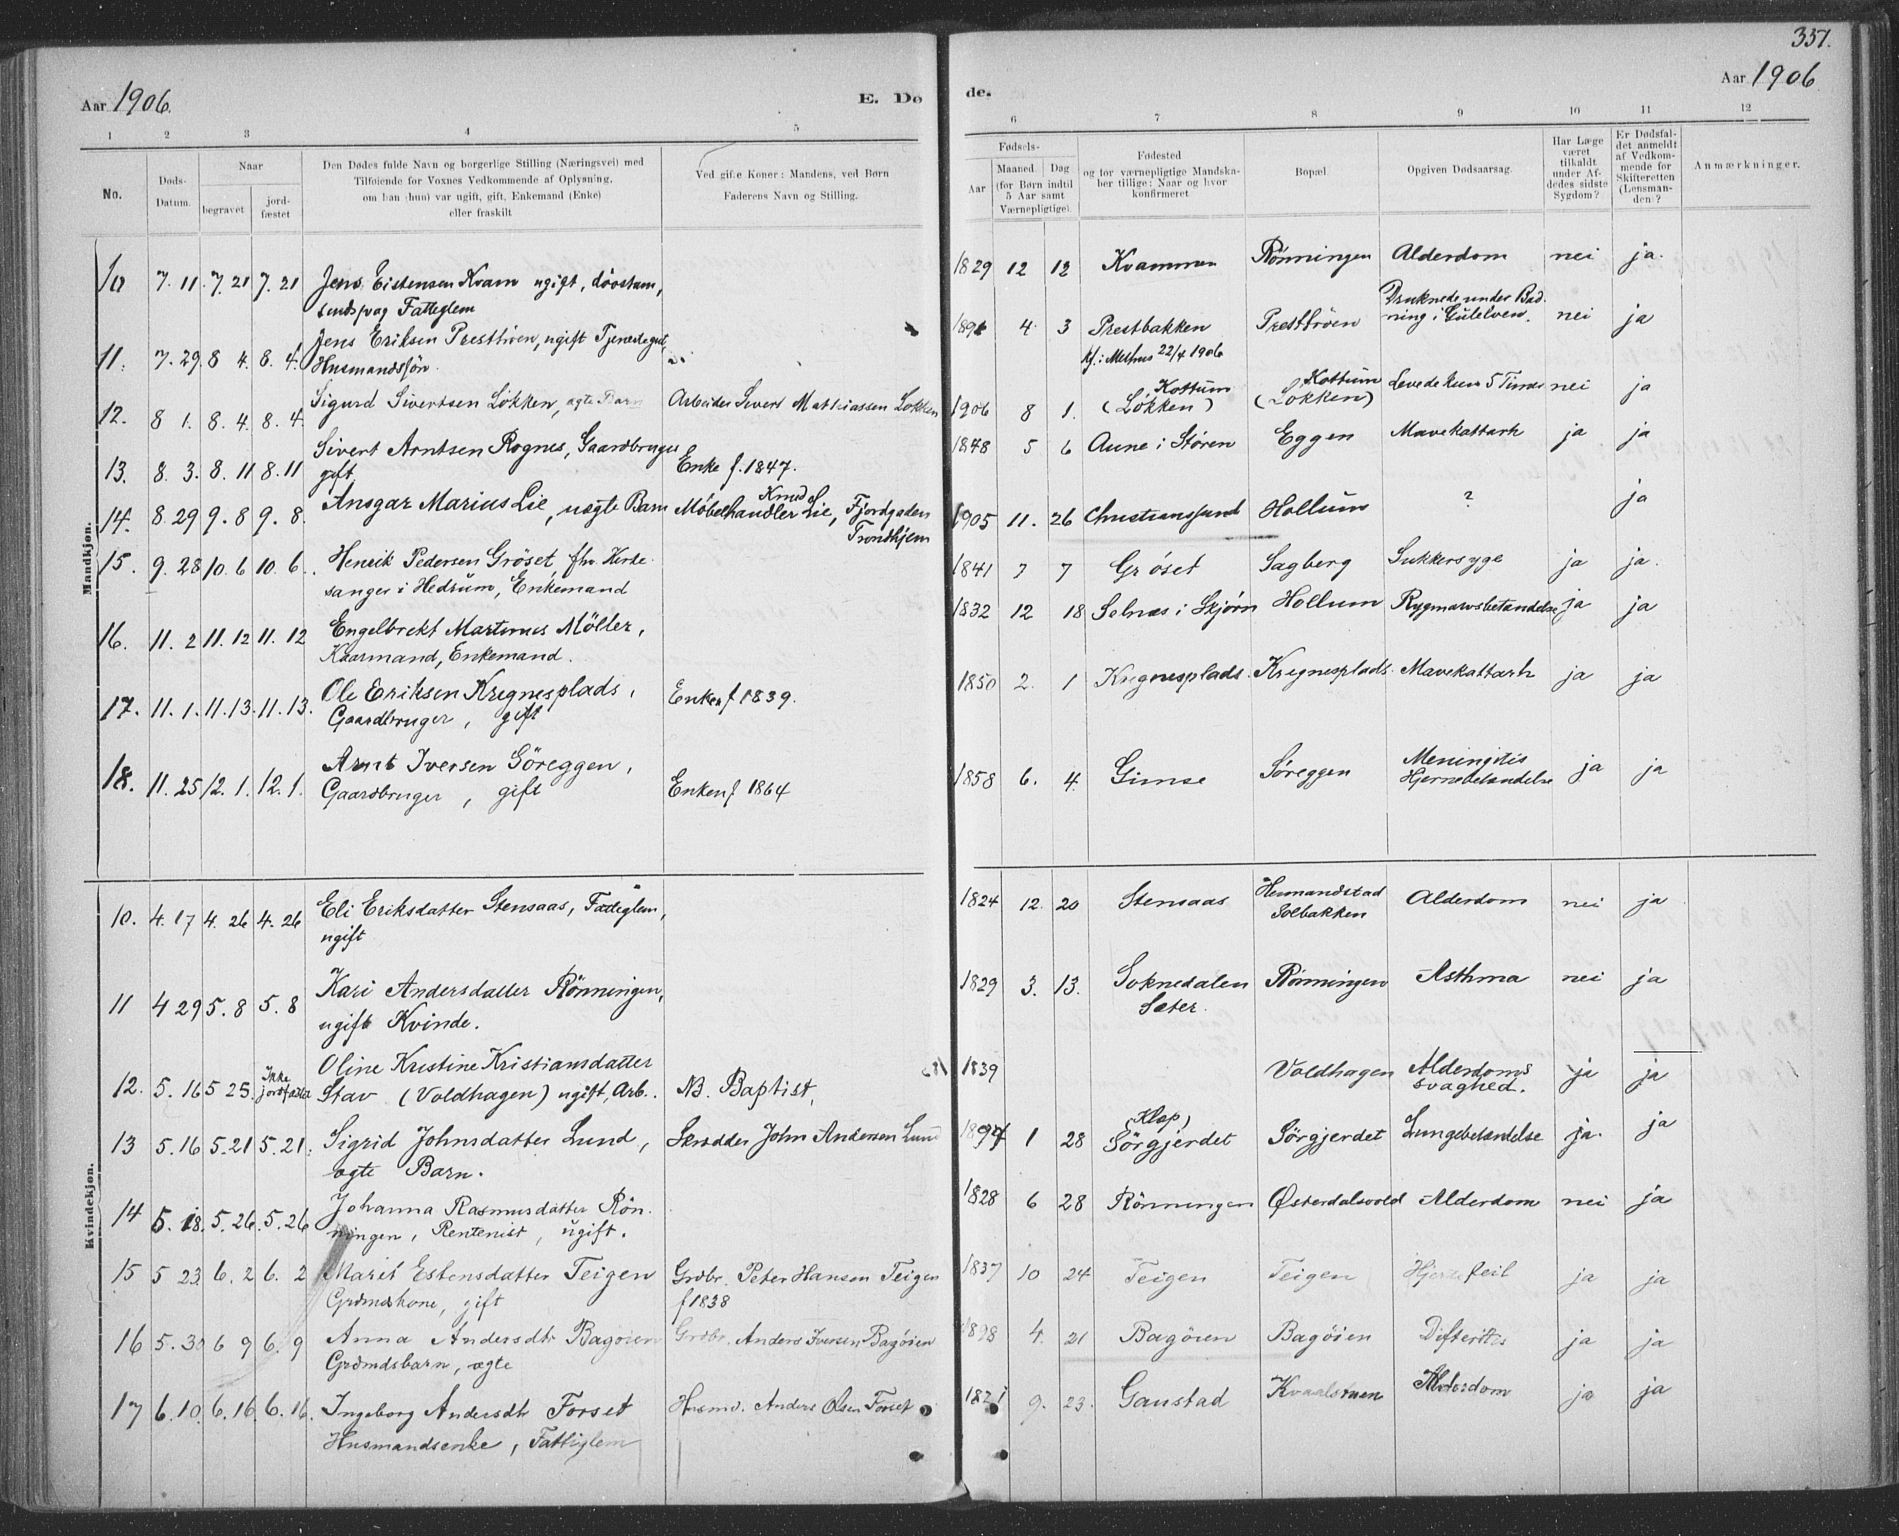 337.
Aar 1906.
E. Dø
de.
Aar 1906
1 2 3 4 5
6 7 8 9 10 11 12
No.
Døds-
Datum.
Naar
begravet
jord-
fæstet
Den Dødes fulde Navn og borgerlige Stilling (Næringsvei) med
Tilføiende for Voxnes Vedkommende af Oplysning,
om han (hun) var ugift, gift, Enkemand (Enke)
eller fraskilt
Ved gifte Koner: Mandens, ved Børn
Faderens Navn og Stilling.
Fødsels-
Aar
Maaned Dag
(for Børn indtil
5 Aar samt
Værnepligtige).
Fødested
og for værnepligtige Mandska-
ber tillige: Naar og hvor
konfirmeret
Bopæl.
Opgiven Dødsaarsag.
Har Læge
været
tilkaldt
under Af-
dødes sidste
Sygdom?
Er Dødsfal-
det anmeldt
af Vedkom-
mende for
Skifteretten
(Lensman-
den)?
Anmærkninger.
Mandkjøn.
10 7. 11. 7. 21 7. 21 Jens Eistensen Kvam ugift, døvstum, 1829 12 12 Kvammen Rönningen Alderdom nei ja.
Fatteglem
11. 7. 29. 8 4. 8. 4. Jens Eriksen Presttröen, ugift Tjenestegut, 4. 3 Prestbakken Presttröen Druknede under Bad- nei ja
Husmandssön. kf. i Melhus 22/4 1906 ning i Gulelven.
12. 8 1. 8. 4. 8. 4. Sigurd Sivertsen Lökken, ægte Barn Arbeider Sivert Mathiassen Lökken 1906 8 1. Kottum (Lökken) Kottum (Lökken) Levede kun 5 Timer nei ja
13. 8. 3. 8. 11 8. 11 Sivert Arntsen Rognes, Gaardbruger 1848 5 6 Aune i Støren Eggen Mavekattarh ja ja
gift Enke f. 1847.
14. 8 29 9. 8 9. 8. Ansgar Marius Lie, uægte Barn Møbelhandler Knud Lie, Fjordgaden 1905 11. 26 Christiansund Hollum ? ja
Trondhjem
15. 9. 28 10. 6 10. 6. Henrik Pedersen Gröset, fhv. Kirke- 1841 7 7 Grøset Sagberg Sukkersyge ja ja.
sanger i Hedrum, Enkemand
16. 11. 2 11. 12 11. 12 Engelbrekt Martinus Möller, 1832 12 18 Selnæs i Skjørn Hollum Rygmarvsbetændelse ja ja
Kaarmand, Enkemand.
17. 11. 1. 11. 13. 11. 13. Ole Eriksen Kregnesplads, Enken f 1839. 1850 2. 1 Kregnesplads. Kregnesplads. Mavekattarh ja ja
Gaardbruger, gift
18. 11. 25 12. 1. 12. 1. Arnt Iversen Söreggen, 1858 6. 4. Gimse Søreggen Meningitis ja ja
Gaardbruger, gift Enken f 1864 Hjernebetændelse
Kvindekjøn.
10. 4. 17 4. 26 4. 26 Eli Eriksdatter Stensaas, Fatteglem, 1824 12. 20 Stensaas Husmandstad Alderdom nei ja
ugift Solbakken
11 4 29 5. 8 5. 8 Kari Andersdatter Rönningen, 1829 3. 13. Soknedalen Rönningen Asthma nei ja
ugift Kvinde. Sæter.
12. 5. 16 5 25. Ikke jordfæstet Oline Kristine Kristiansdatter 1839 Voldhagen Alderdoms ja ja
Stav (Voldhagen) ugift, Arb. NB. Baptist, svaghed.
13 5. 16 5. 21 5. 21. Sigrid Johnsdatter Lund, Skrædder John Andersen Lund 1897 1 28 (Klap) Sörgjerdet Sörgjerdet Lungebetændelse ja. ja
ægte Barn.
14 5. 18. 5. 26 5. 26 Johanna Rasmusdatter Rön- 1828 6 28 Rönningen Østerdalsvold Alderdom nei ja
ningen, Rentenist, ugift.
15 5 23. 6. 2 6. 2 Marit Estensdatter Teigen Grdbr. Peter Hansen Teigen 1837 10 24 Teigen Teigen Hjertefeil ja ja
Grdmdskone, gift f 1838
16 5. 30 6 9 6. 9 Anna Andersdtr Bagöien Grdbr. Anders Iversen Bagöien 1898 4. 21 Bagöien Bagöien Difteritis ja ja
Grdmdsbarn, ægte
17 6. 10. 6. 16. 6. 16. Ingeborg Andersdtr Forset Husmd. Anders Olsen Forset 1821 9. 23. Gaustad Alderdom ja ja
Husmandsenke, Fattiglem